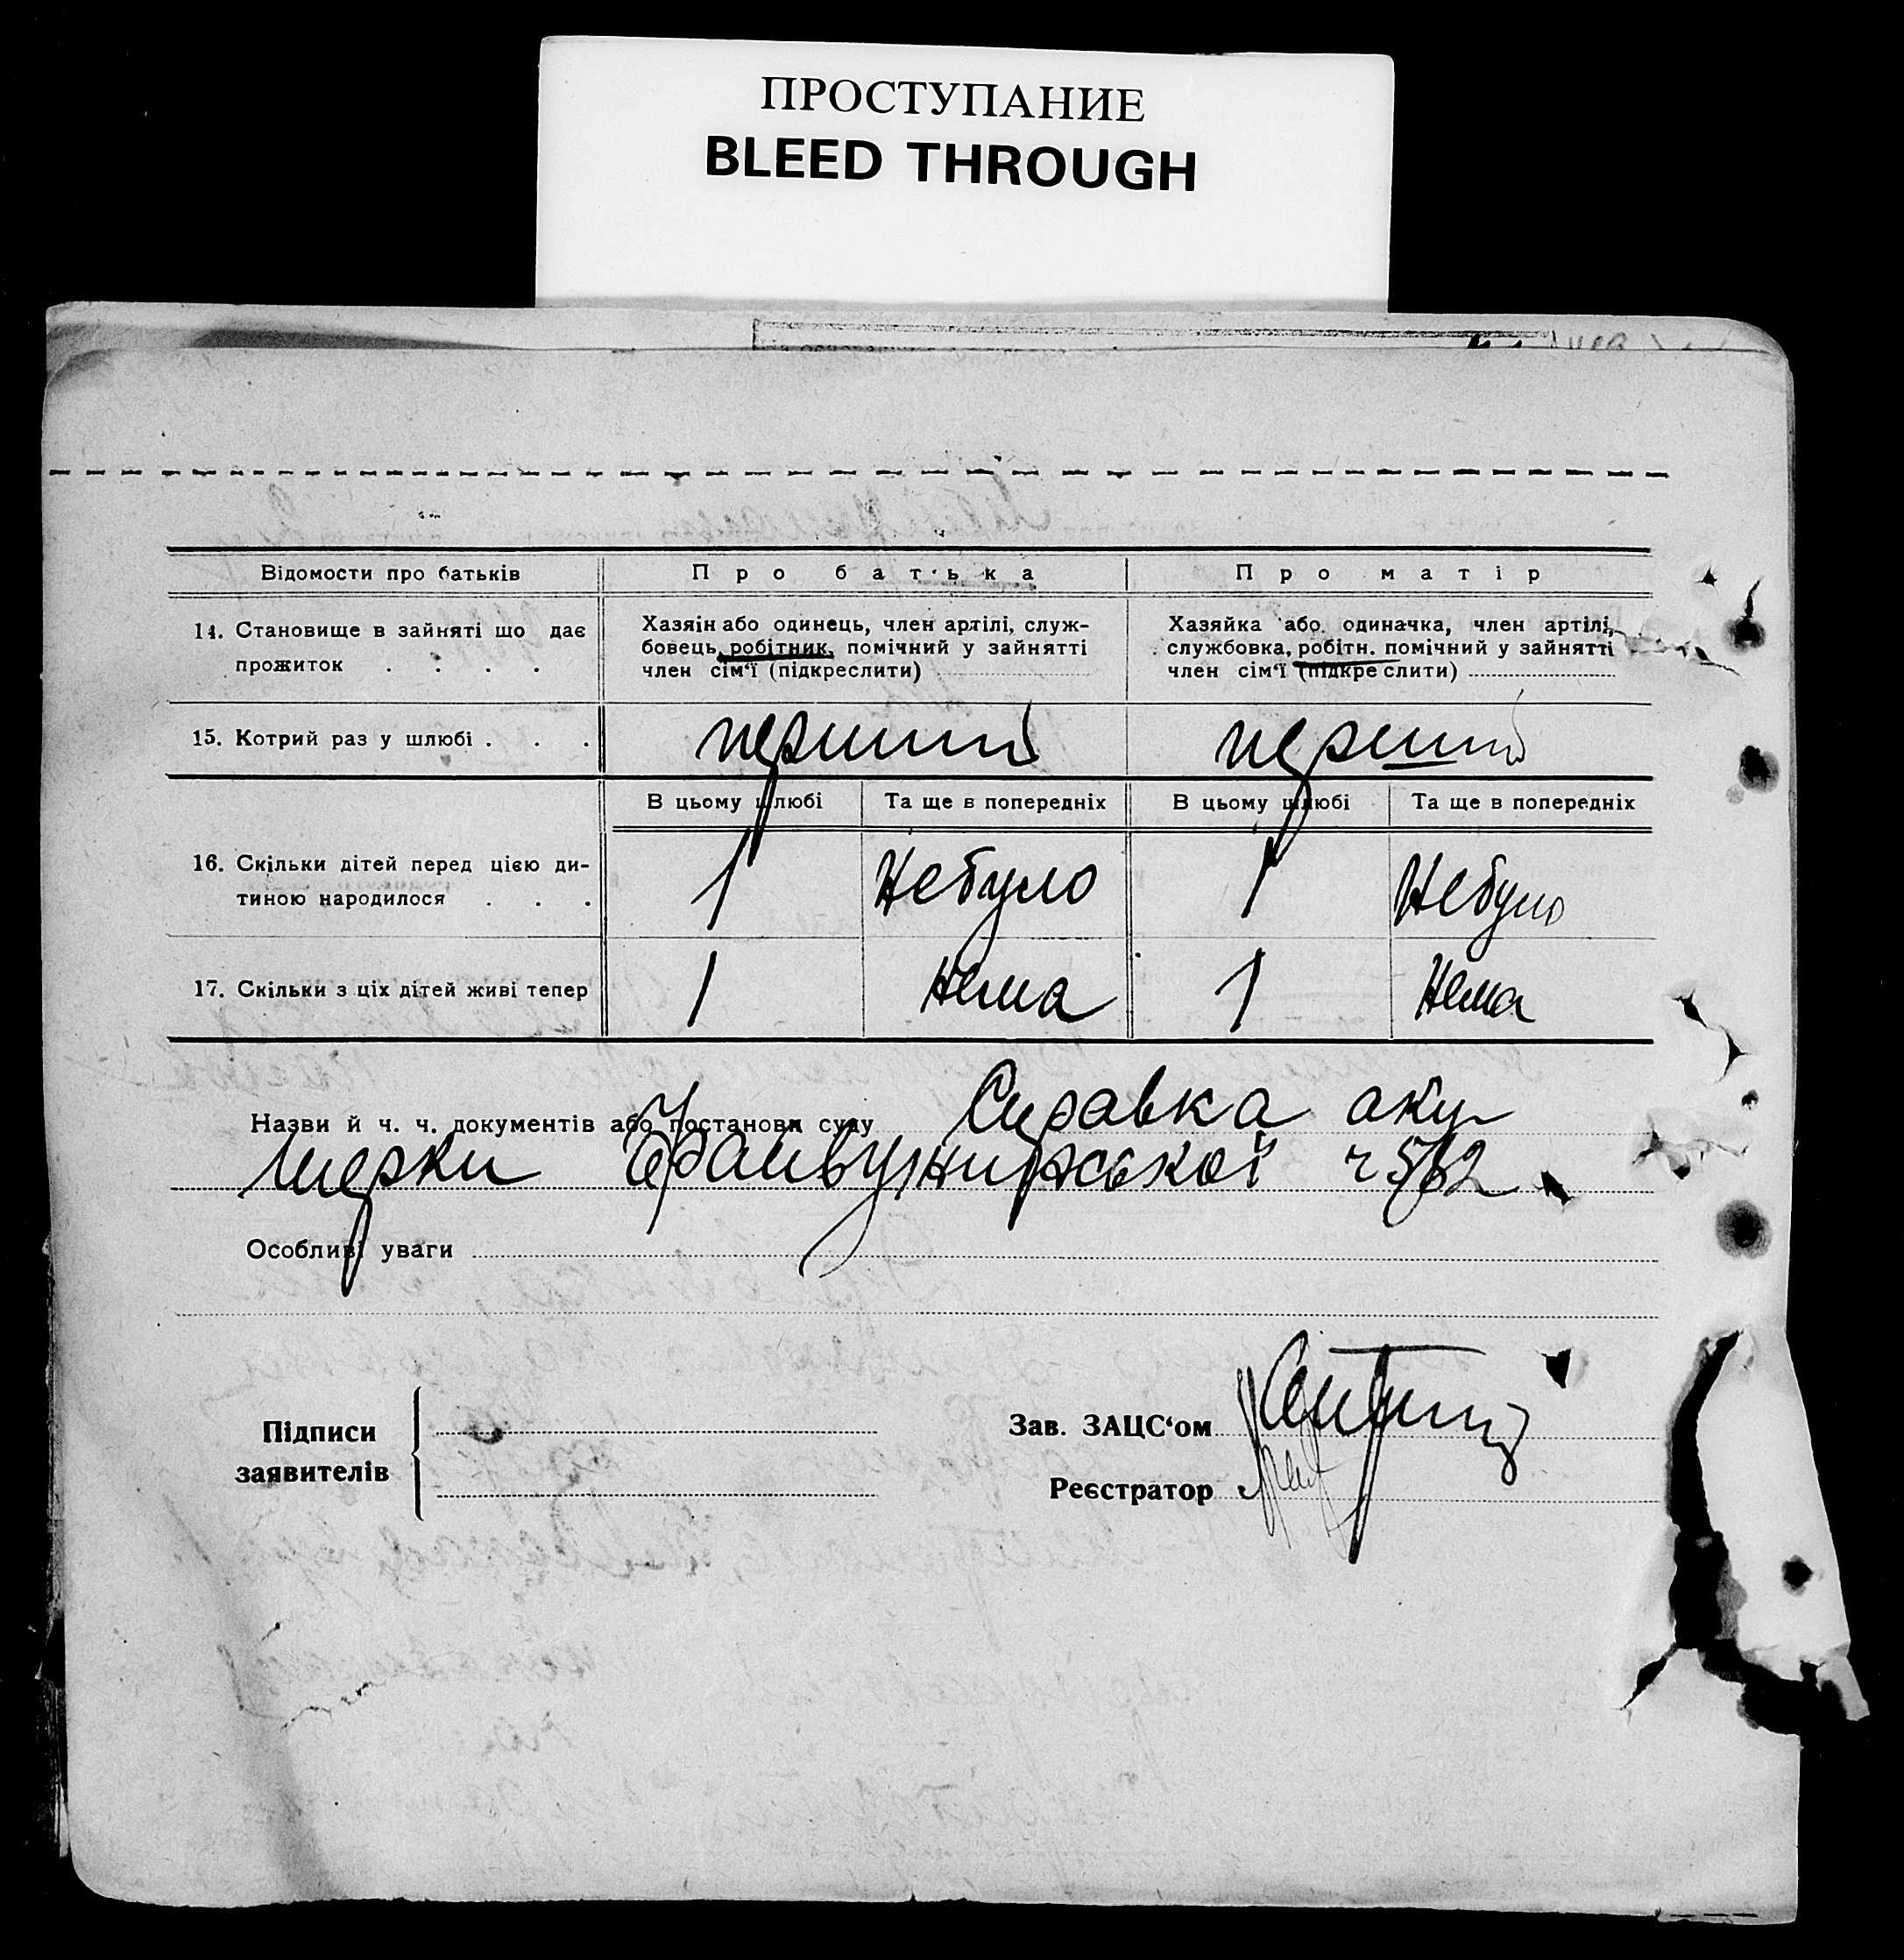 ПРОСТУПАНИЕ
BLEED THROUGH
Відомости про батьків
Про батька
Про матір
14. Становище в зайняті що дає
прожиток . . . .
Хазяїн або одинець, член артілі, служ-
бовець, робітник, помічний у зайнятті
член сім‘ї (підкреслити)
Хазяйка або одиначка, член артілі,
службовка, робітн. помічний у зайнятті
член сім‘ї (підкреслити)
15. Котрий раз у шлюбі . . .
перший
перший
В цьому шлюбі
Та ще в попередніх
В цьому шлюбі
Та ще в попередніх
16. Скільки дітей перед цією ди-
тиною народилося . . .
1
Небуло
1
Небуло
17. Скільки з ціх дітей живі тепер
1
Нема
1
Нема
Назви й ч. ч. документів або постанови суду Справка аку
шерки ч 5/62
Особливі уваги
Підписи
заявителів
Зав. ЗАЦС‘ом
Реєстратор